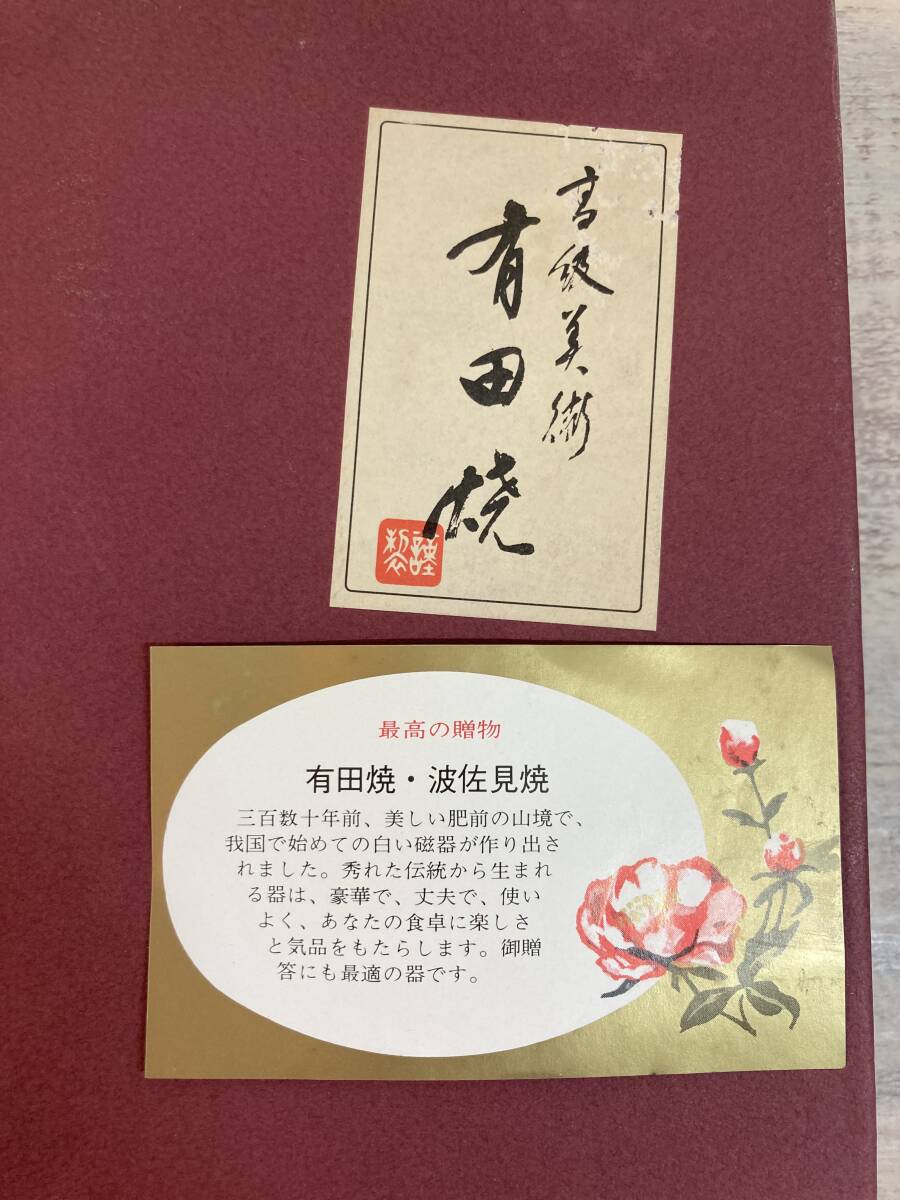 高級美術
有田焼
謹製
最高の贈物
有田焼・波佐見焼
三百数十年前、美しい肥前の山境で、
我国で始めての白い磁器が作り出さ
れました。秀れた伝統から生まれ
る器は、豪華で、丈夫で、使い
よく、あなたの食卓に楽しさ
と気品をもたらします。御贈
答にも最適の器です。